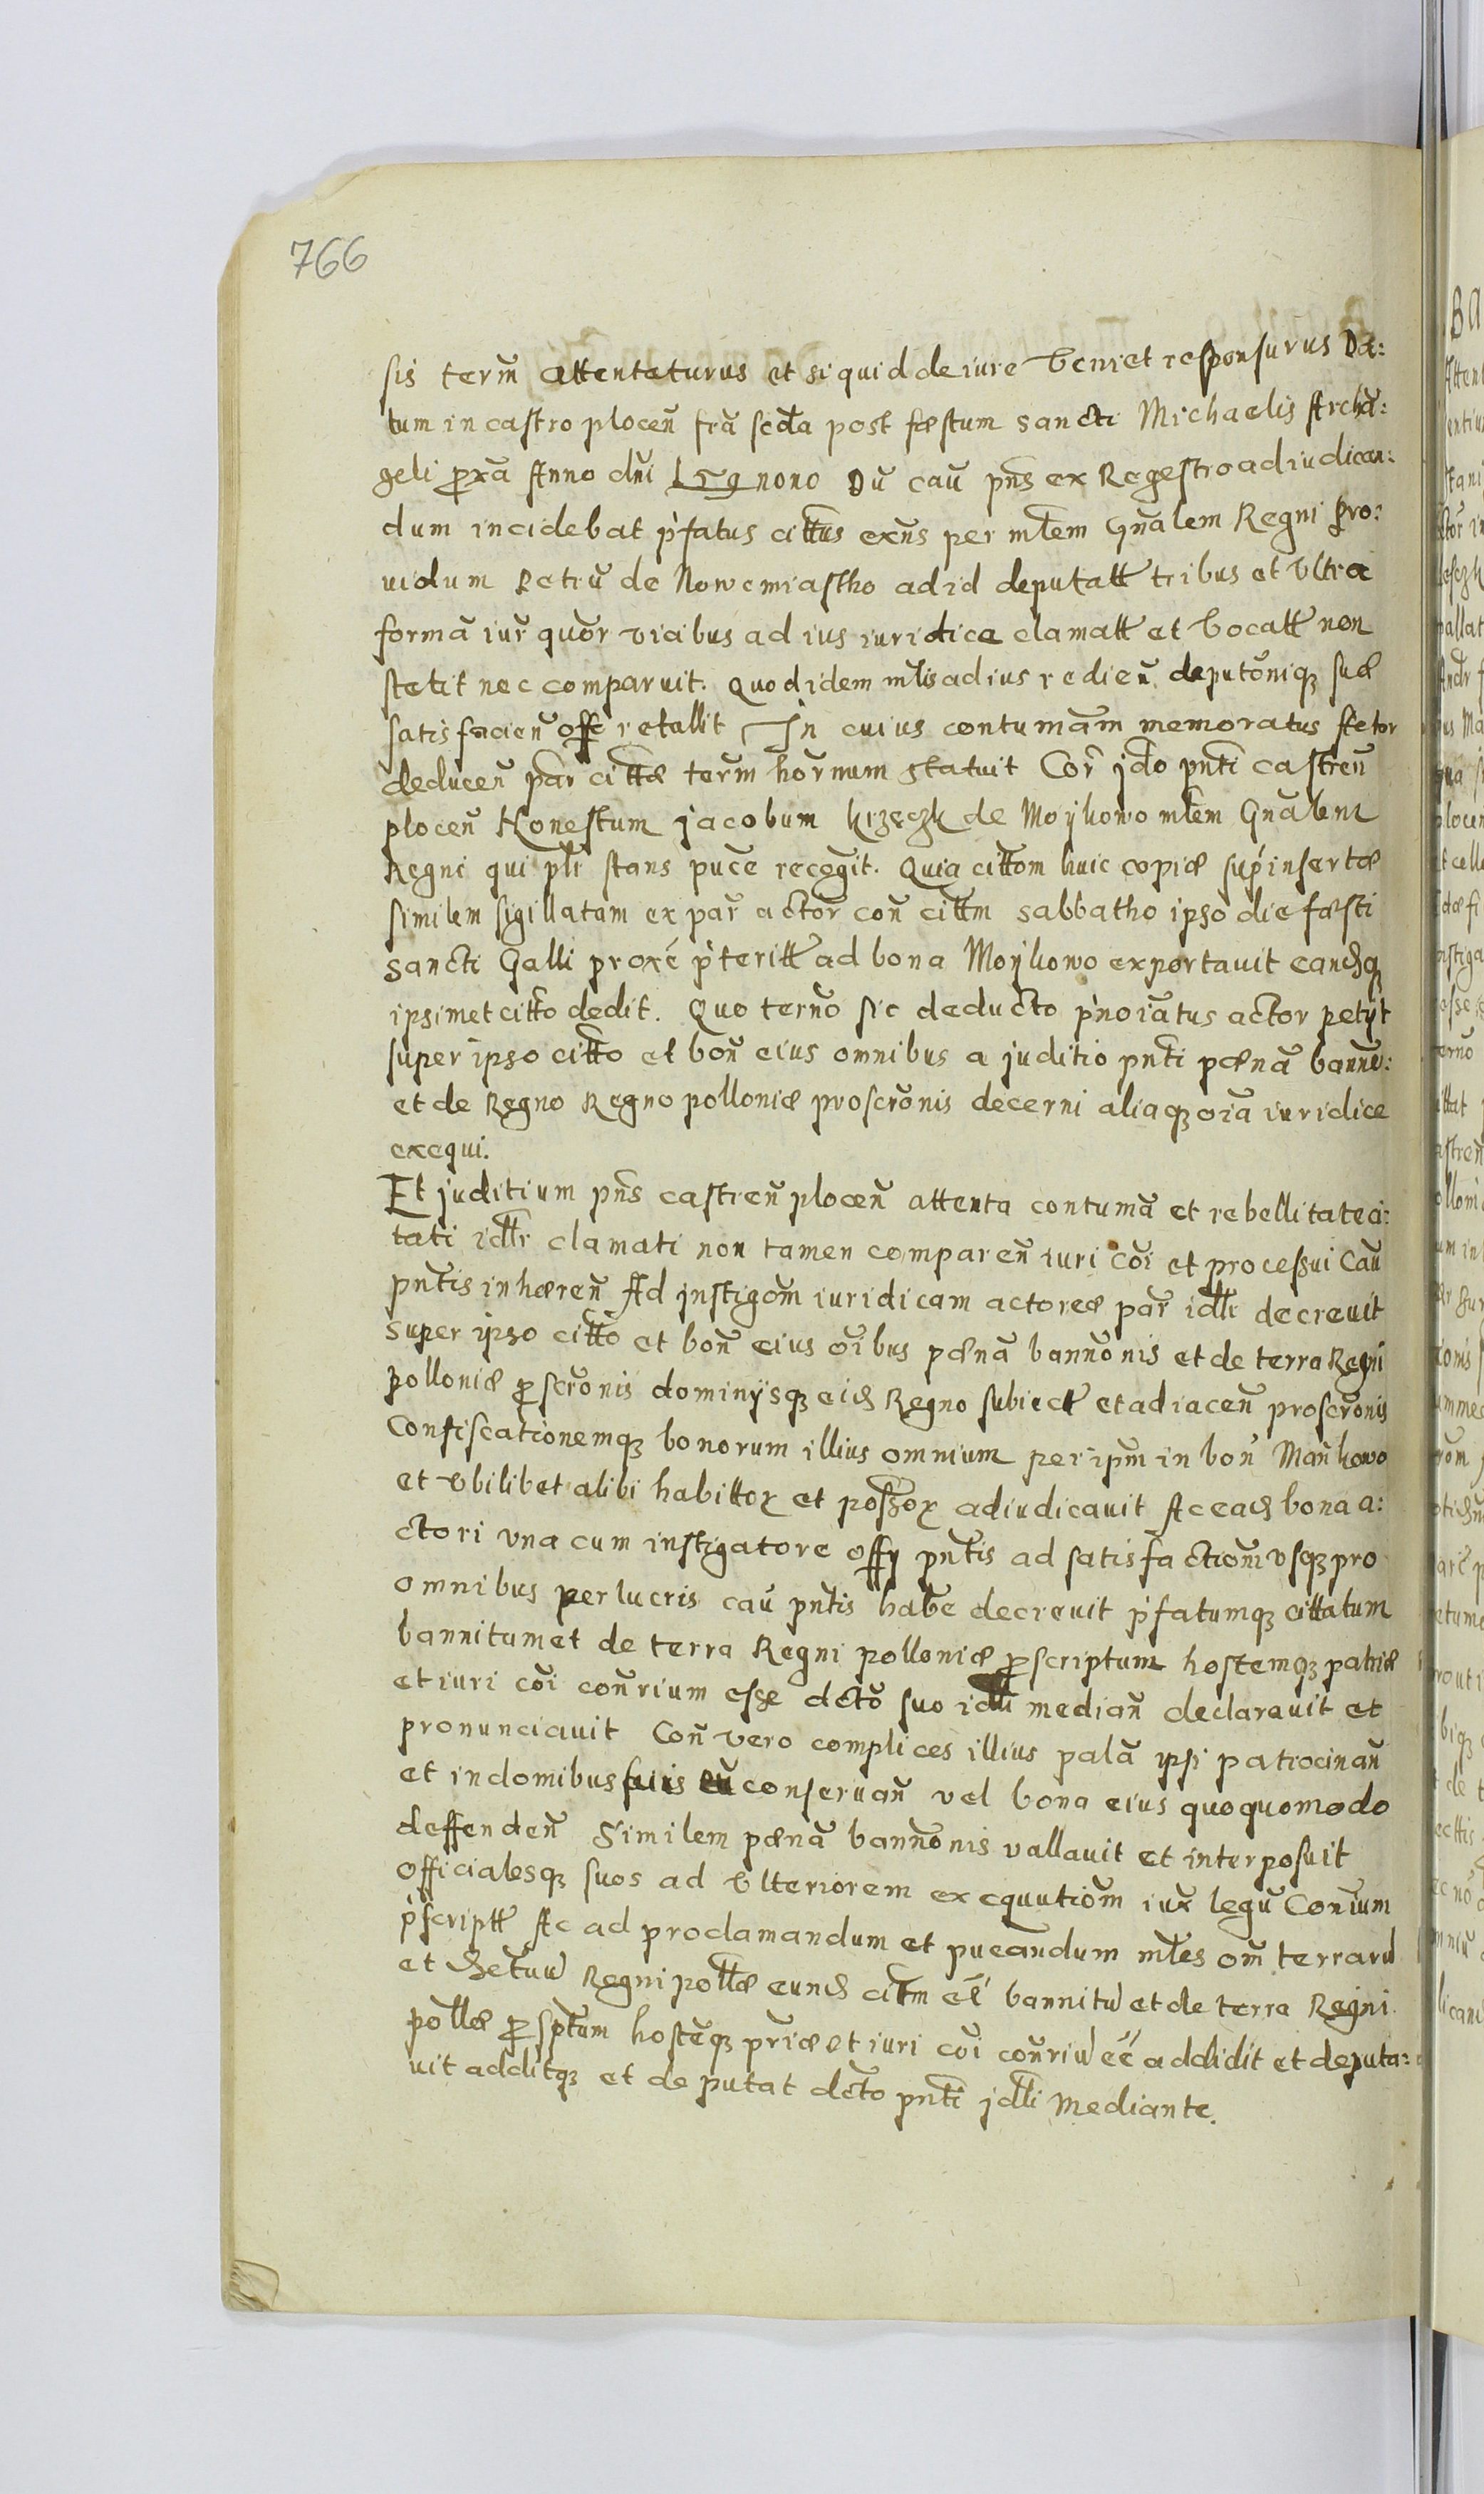 766
sis termn̄ attentaturus et si quid de iure veniet responsurus Da:
tum in castro plocen̄ frā scda post fæstum sancti Michaelis Archā:
geli proxā Anno dni nono Dū caū pn̄s ex Regestro adiudican:
dum incidebat p̄fatus cittus exn̄s per mlem Gn̄alem Regni Pro:
uidum Petrū de Nowemiastho ad id deputatt tribus et vltra
formā iur̄ quor̄ vicibus ad ius iuridice clamatt et vocatt non
stetit nec comparuit. Quod idem mlis ad ius redien̄ deputōniq3 suæ
satisfacien̄ offe retullit In cuius contumām memoratus Actor
deducen̄ par cittæ term̄ hor̄num statuit Cor̄ jdo pn̄ti castren̄
plocen̄ Honestum jacobum Krzeczk de Moÿkowo mlem Gn̄alem
Regni qui plr stans puce recogit. Quia cittom huic copiæ sup̄insertæ
similem sigillatam ex par̄ actor̄ con̄ cittm sabbatho ipso die fæsti
sancti Galli proxe p̄teritt ad bona Moÿkowo exportauit eandq3
ipsimet citto dedit. Quo ternō sic deducto p̄noiatus actor petÿt
super ipso citto et bon̄ eius omnibus a juditio pn̄ti pænā bannō:
et de Regno Regno polloniæ proscrōnis decerni aliaq3 oīa iuridice
exequi.
Et juditium pn̄s castren̄ plocen̄ attenta contumā et rebellitate ci:
tati idlr clamati non tamen comparen̄ iuri cōi et processui Caū
pn̄tis inhæren̄ Ad jnstigōm iuridicam actoreæ par̄ idlr decreuit
super ipso citto et bon̄ eius oībus pænā bannōnis et de terra Regni
polloniæ proscrōnis dominÿsq3 eid Regno subiectt et adiacen̄ proscrōnis
Confiscationemq3 bonorum illius omnium per ipm̄ in bon̄ Mankowo
et vbilibet alibi habittor et possor adiudicauit Ac ead bona a:
ctori vna cum instigatore offy pn̄tis ad satisfactiōm vsq3 pro
omnibus perlucris caū pn̄tis habe decreuit p̄fatumq3 cittatum
bannitum et de terra Regni polloniæ proscriptum hostemq3 patriæ
et iuri cōi con̄rium esse dctō suo idli median̄ declarauit et
pronunciauit Con̄ vero complices illius palā ipsi patrocinan̄
et in domibus suis eū conseruan̄ vel bona eius quoquomodo
deffenden̄ Similem pænā bannōnis vallauit et interposuit
officialesq3 suos ad vlteriorem exequutiōm iux̄ legū Con̄ium
p̄scriptt Ac ad proclamandum et pucandum mles om̄ terrarū
et Regni pollæ eund cittm ee bannitū et de terra Regni
pollæ prosptum hosteq3 pr̄iæ et iuri cōi con̄riū ee addidit et deputa:
uit additq3 et deputat dcto pn̄ti jdli Mediante.